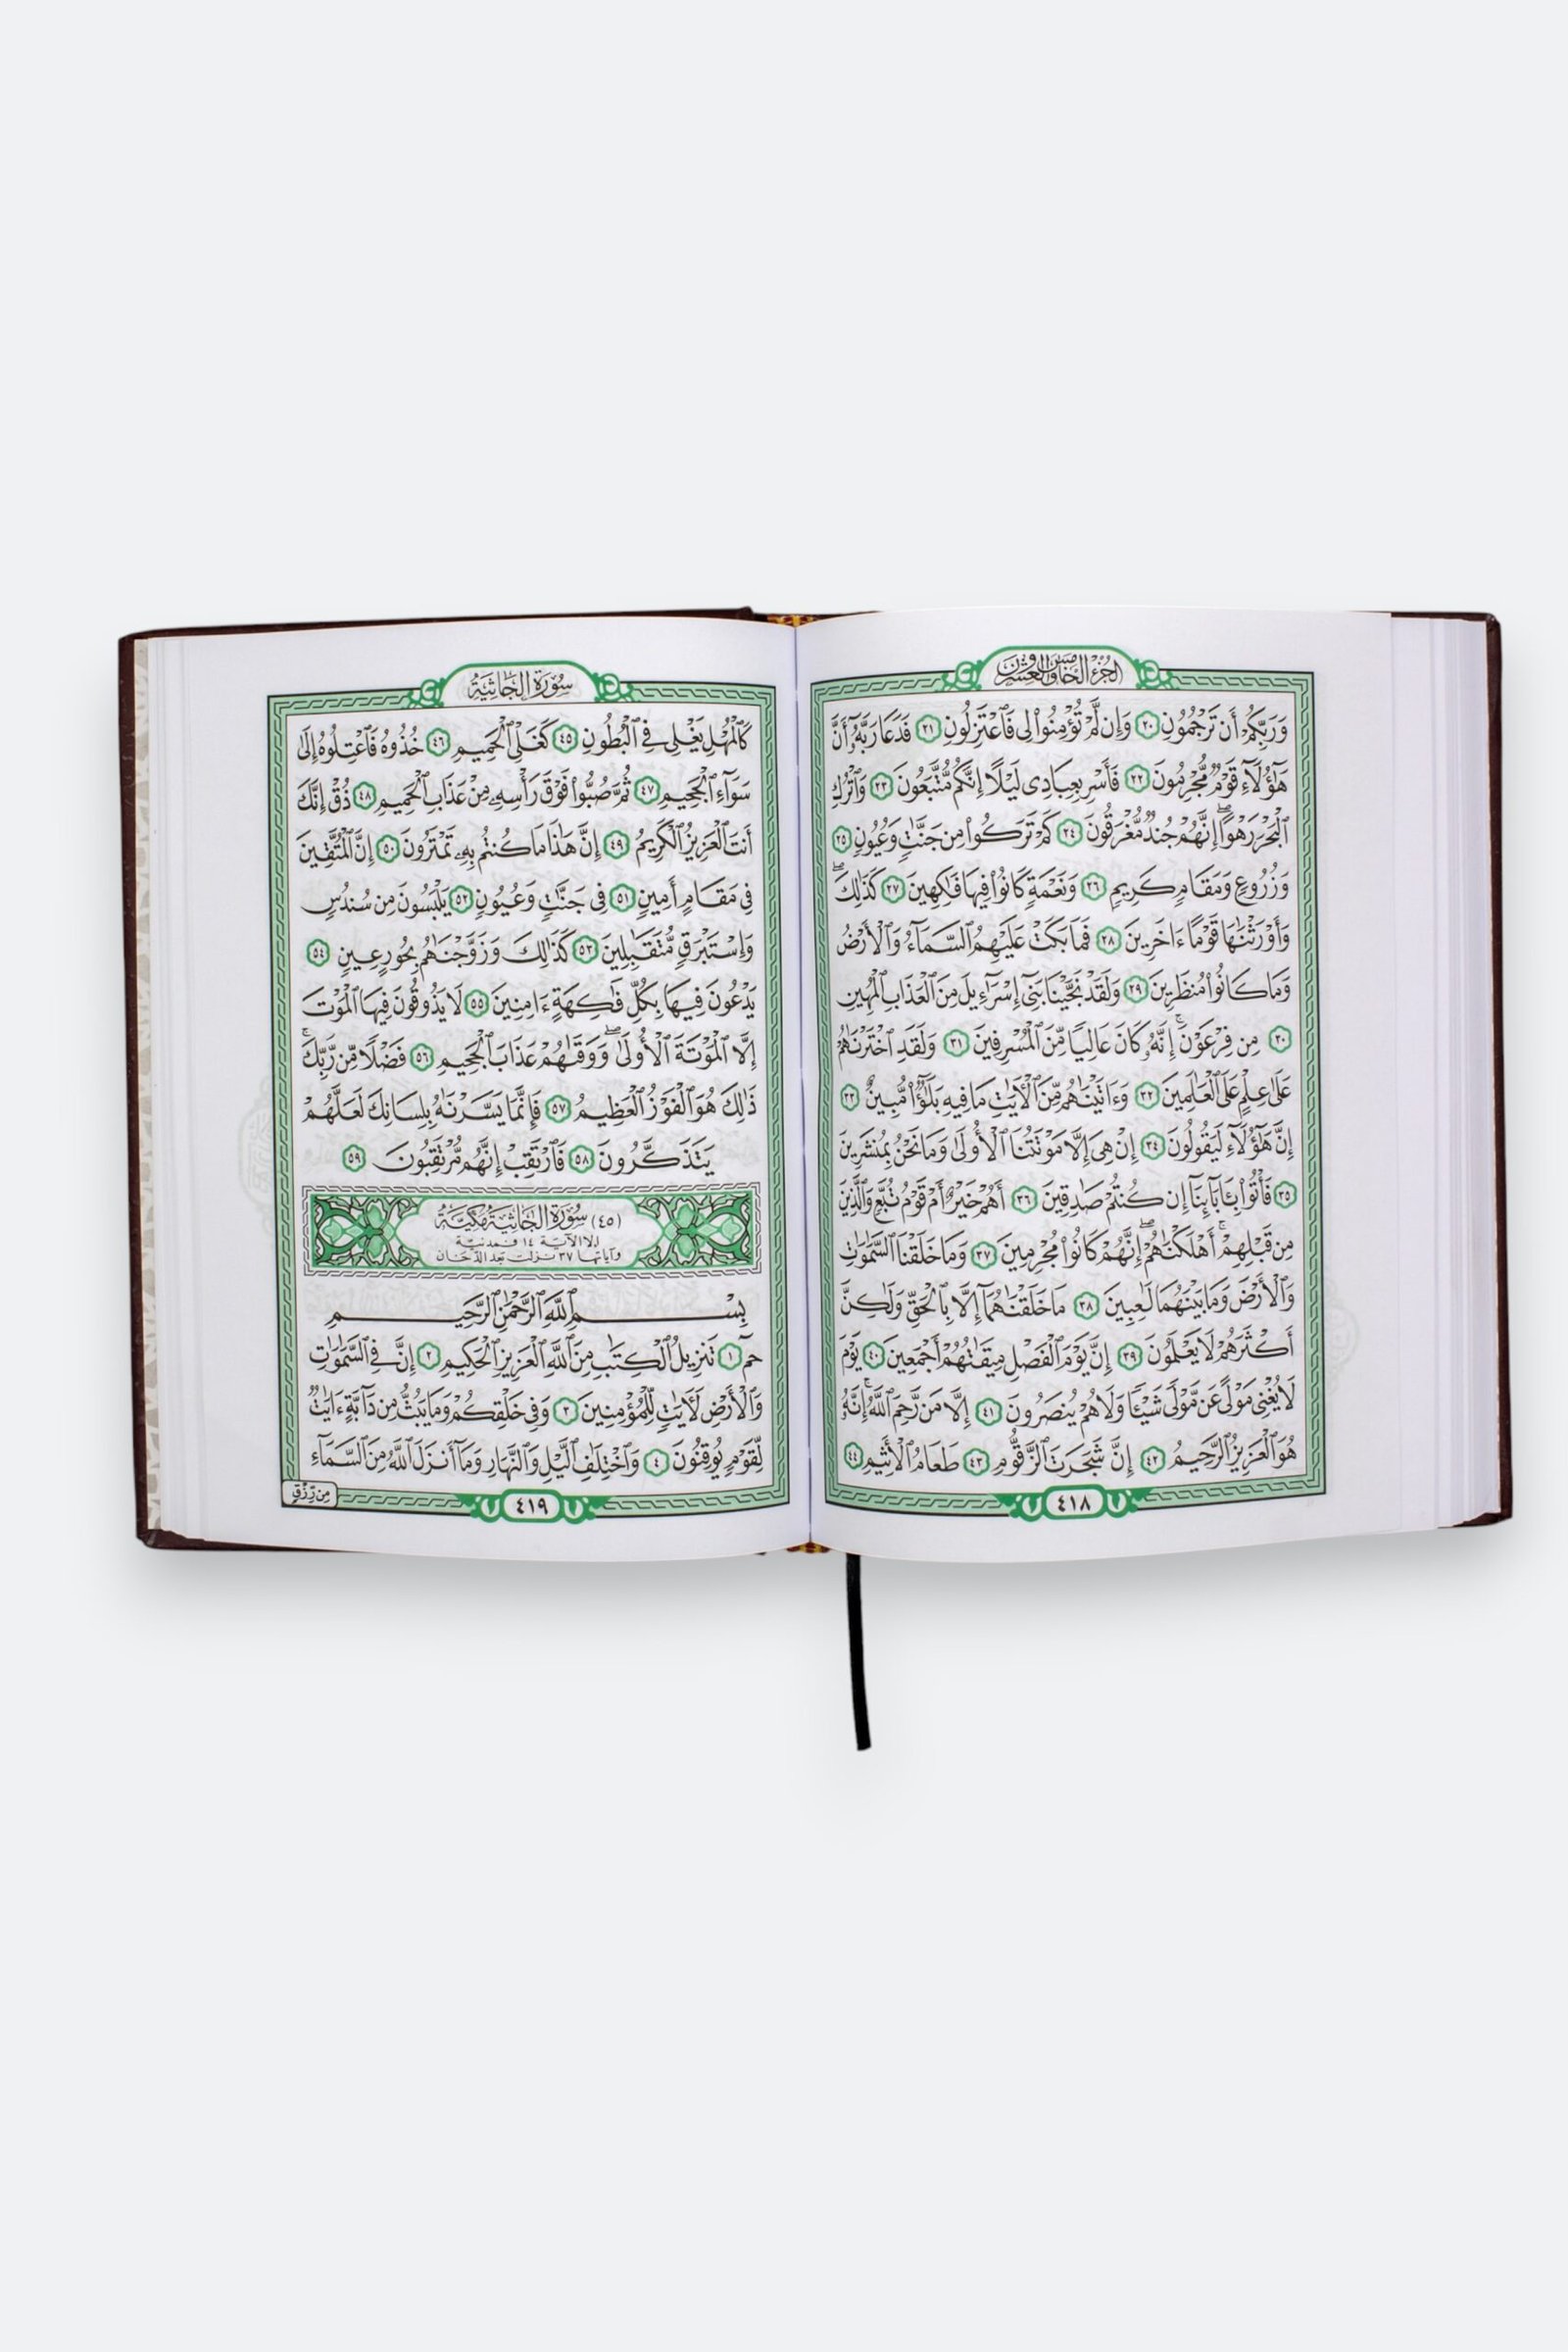 الجزء الخامس والعشرون
وَرَبِّكُمْ أَن تَرْجُمُونِ ٢٠ وَإِن لَّمْ تُؤْمِنُوا۟ لِى فَٱعْتَزِلُونِ ٢١ فَدَعَا رَبَّهُۥٓ أَنَّ
هَٰٓؤُلَآءِ قَوْمٌ مُّجْرِمُونَ ٢٢ فَأَسْرِ بِعِبَادِى لَيْلًا إِنَّكُم مُّتَّبَعُونَ ٢٣ وَٱتْرُكِ
ٱلْبَحْرَ رَهْوًا ۖ إِنَّهُمْ جُندٌ مُّغْرَقُونَ ٢٤ كَمْ تَرَكُوا۟ مِن جَنَّٰتٍ وَعُيُونٍ ٢٥
وَزُرُوعٍ وَمَقَامٍ كَرِيمٍ ٢٦ وَنَعْمَةٍ كَانُوا۟ فِيهَا فَٰكِهِينَ ٢٧ كَذَٰلِكَ ۖ
وَأَوْرَثْنَٰهَا قَوْمًا ءَاخَرِينَ ٢٨ فَمَا بَكَتْ عَلَيْهِمُ ٱلسَّمَآءُ وَٱلْأَرْضُ
وَمَا كَانُوا۟ مُنظَرِينَ ٢٩ وَلَقَدْ نَجَّيْنَا بَنِىٓ إِسْرَٰٓءِيلَ مِنَ ٱلْعَذَابِ ٱلْمُهِينِ
٣٠ مِن فِرْعَوْنَ ۚ إِنَّهُۥ كَانَ عَالِيًا مِّنَ ٱلْمُسْرِفِينَ ٣١ وَلَقَدِ ٱخْتَرْنَٰهُمْ
عَلَىٰ عِلْمٍ عَلَى ٱلْعَٰلَمِينَ ٣٢ وَءَاتَيْنَٰهُم مِّنَ ٱلْءَايَٰتِ مَا فِيهِ بَلَٰٓؤٌا۟ مُّبِينٌ ٣٣
إِنَّ هَٰٓؤُلَآءِ لَيَقُولُونَ ٣٤ إِنْ هِىَ إِلَّا مَوْتَتُنَا ٱلْأُولَىٰ وَمَا نَحْنُ بِمُنشَرِينَ
٣٥ فَأْتُوا۟ بِـَٔابَآئِنَآ إِن كُنتُمْ صَٰدِقِينَ ٣٦ أَهُمْ خَيْرٌ أَمْ قَوْمُ تُبَّعٍ وَٱلَّذِينَ
مِن قَبْلِهِمْ ۚ أَهْلَكْنَٰهُمْ ۖ إِنَّهُمْ كَانُوا۟ مُجْرِمِينَ ٣٧ وَمَا خَلَقْنَا ٱلسَّمَٰوَٰتِ
وَٱلْأَرْضَ وَمَا بَيْنَهُمَا لَٰعِبِينَ ٣٨ مَا خَلَقْنَٰهُمَآ إِلَّا بِٱلْحَقِّ وَلَٰكِنَّ
أَكْثَرَهُمْ لَا يَعْلَمُونَ ٣٩ إِنَّ يَوْمَ ٱلْفَصْلِ مِيقَٰتُهُمْ أَجْمَعِينَ ٤٠ يَوْمَ
لَا يُغْنِى مَوْلًى عَن مَّوْلًى شَيْـًٔا وَلَا هُمْ يُنصَرُونَ ٤١ إِلَّا مَن رَّحِمَ ٱللَّهُ ۚ إِنَّهُۥ
هُوَ ٱلْعَزِيزُ ٱلرَّحِيمُ ٤٢ إِنَّ شَجَرَتَ ٱلزَّقُّومِ ٤٣ طَعَامُ ٱلْأَثِيمِ ٤٤
٤١٨
سورة الجاثية
كَٱلْمُهْلِ يَغْلِى فِى ٱلْبُطُونِ ٤٥ كَغَلْىِ ٱلْحَمِيمِ ٤٦ خُذُوهُ فَٱعْتِلُوهُ إِلَىٰ
سَوَآءِ ٱلْجَحِيمِ ٤٧ ثُمَّ صُبُّوا۟ فَوْقَ رَأْسِهِۦ مِنْ عَذَابِ ٱلْحَمِيمِ ٤٨ ذُقْ إِنَّكَ
أَنتَ ٱلْعَزِيزُ ٱلْكَرِيمُ ٤٩ إِنَّ هَٰذَا مَا كُنتُم بِهِۦ تَمْتَرُونَ ٥٠ إِنَّ ٱلْمُتَّقِينَ
فِى مَقَامٍ أَمِينٍ ٥١ فِى جَنَّٰتٍ وَعُيُونٍ ٥٢ يَلْبَسُونَ مِن سُندُسٍ
وَإِسْتَبْرَقٍ مُّتَقَٰبِلِينَ ٥٣ كَذَٰلِكَ وَزَوَّجْنَٰهُم بِحُورٍ عِينٍ ٥٤
يَدْعُونَ فِيهَا بِكُلِّ فَٰكِهَةٍ ءَامِنِينَ ٥٥ لَا يَذُوقُونَ فِيهَا ٱلْمَوْتَ
إِلَّا ٱلْمَوْتَةَ ٱلْأُولَىٰ ۖ وَوَقَىٰهُمْ عَذَابَ ٱلْجَحِيمِ ٥٦ فَضْلًا مِّن رَّبِّكَ ۚ
ذَٰلِكَ هُوَ ٱلْفَوْزُ ٱلْعَظِيمُ ٥٧ فَإِنَّمَا يَسَّرْنَٰهُ بِلِسَانِكَ لَعَلَّهُمْ
يَتَذَكَّرُونَ ٥٨ فَٱرْتَقِبْ إِنَّهُم مُّرْتَقِبُونَ ٥٩
(٤٥) سورة الجاثية مكية
إلا الآية ١٤ فمدنية
وآياتها ٣٧ نزلت بعد الدخان
بِسْمِ ٱللَّهِ ٱلرَّحْمَٰنِ ٱلرَّحِيمِ
حمٓ ١ تَنزِيلُ ٱلْكِتَٰبِ مِنَ ٱللَّهِ ٱلْعَزِيزِ ٱلْحَكِيمِ ٢ إِنَّ فِى ٱلسَّمَٰوَٰتِ
وَٱلْأَرْضِ لَءَايَٰتٍ لِّلْمُؤْمِنِينَ ٣ وَفِى خَلْقِكُمْ وَمَا يَبُثُّ مِن دَآبَّةٍ ءَايَٰتٌ
لِّقَوْمٍ يُوقِنُونَ ٤ وَٱخْتِلَٰفِ ٱلَّيْلِ وَٱلنَّهَارِ وَمَآ أَنزَلَ ٱللَّهُ مِنَ ٱلسَّمَآءِ
مِن رِّزْقٍ
٤١٩